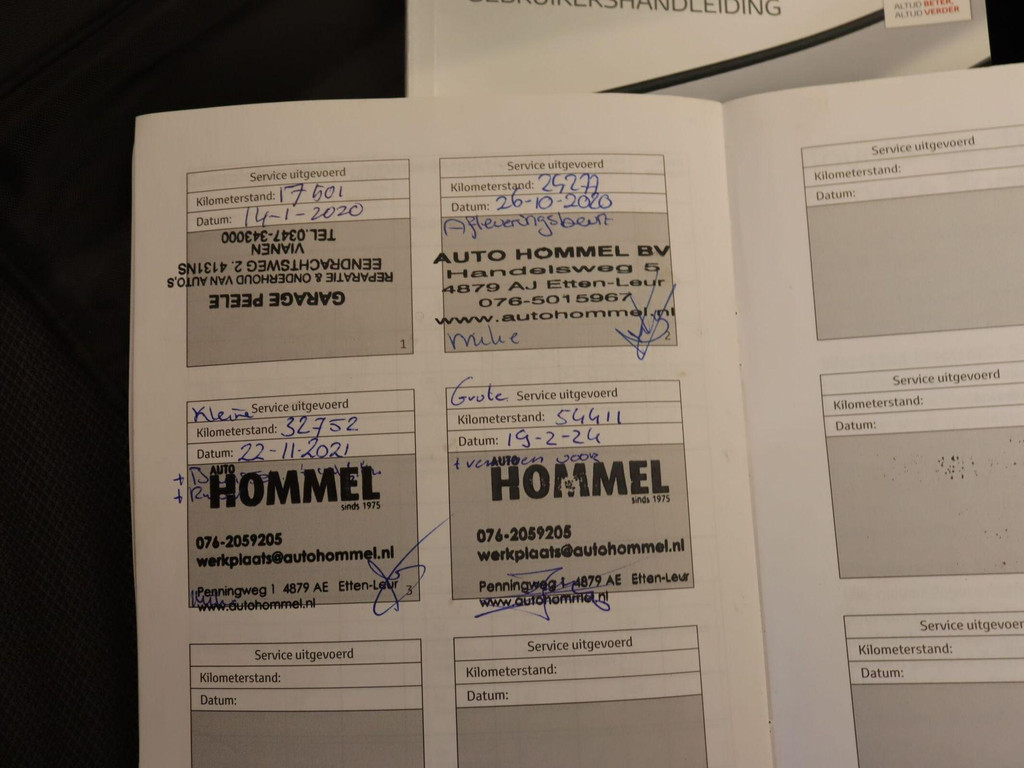 GEBRUIKERSHANDLEIDING
ALTIJD BETER,
ALTIJD VERDER
Service uitgevoerd
Kilometerstand: 17501
Datum: 14-1-2020
GARAGE PEELE
REPARATIE & ONDERHOUD VAN AUTO,S
EENDRACHTSWEG 2. 4131NS
VIANEN
TEL.0347-343000
1
Service uitgevoerd
Kilometerstand: 24277
Datum: 26-10-2020
Afleveringsbeurt
AUTO HOMMEL BV
Handelsweg 5
4879 AJ Etten-Leur
076-5015967
www.autohommel.nl
2
Kleine Service uitgevoerd
Kilometerstand: 32752
Datum: 22-11-2021
AUTO
HOMMEL
sinds 1975
076-2059205
werkplaats@autohommel.nl
Penningweg 1 4879 AE Etten-Leur
www.autohommel.nl
3
Grote Service uitgevoerd
Kilometerstand: 54411
Datum: 19-2-24
voor
AUTO
HOMMEL
sinds 1975
076-2059205
werkplaats@autohommel.nl
Penningweg 1 4879 AE Etten-Leur
www.autohommel.nl
Service uitgevoerd
Kilometerstand:
Datum:
Service uitgevoerd
Kilometerstand:
Datum:
Service uitgevoerd
Kilometerstand:
Datum:
Service uitgevoerd
Kilometerstand:
Datum:
Service uitgevoer
Kilometerstand:
Datum: